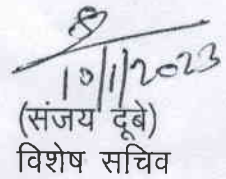 10/1/2023
(संजय दूबे)
विशेष सचिव